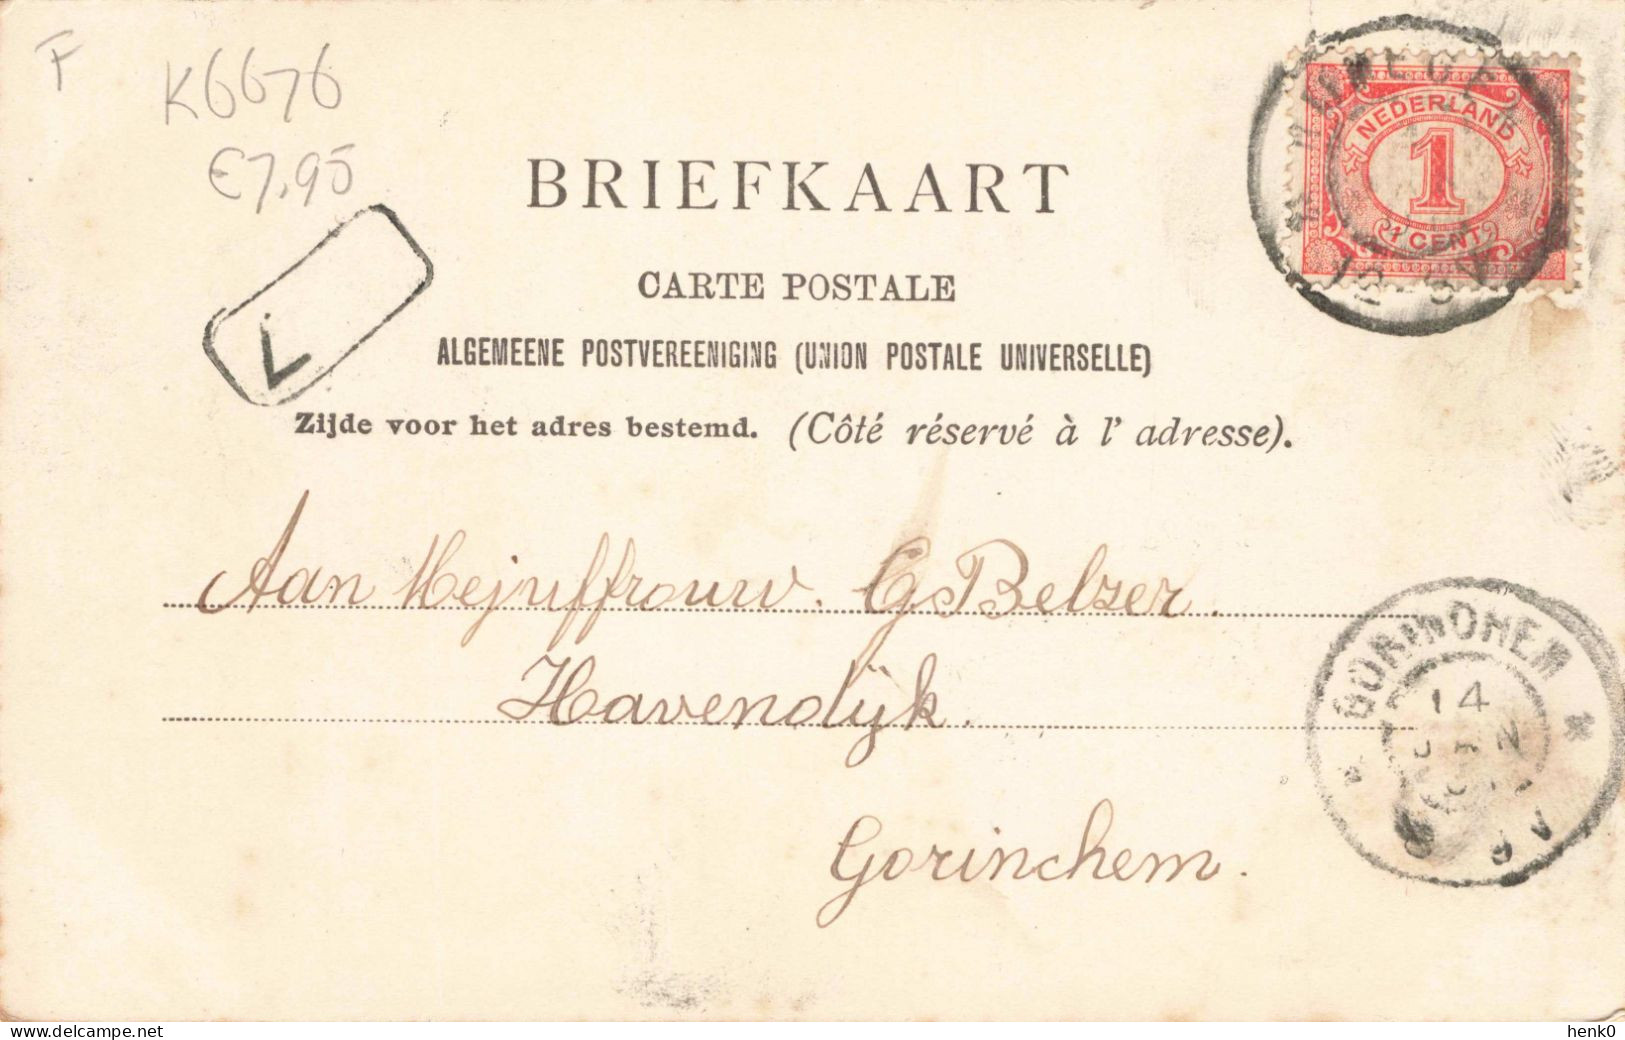 F
K6676
€7,95
NEDERLAND
1
1 CENT
BRIEFKAART
CARTE POSTALE
ALGEMEENE POSTVEREENIGING (UNION POSTALE UNIVERSELLE)
L
Zijde voor het adres bestemd. (Côté réservé à l' adresse).
Aan Mejuffrouw. G Belzer.
Havendijk.
Gorinchem.
GORINCHEM
14
JAN
henk0